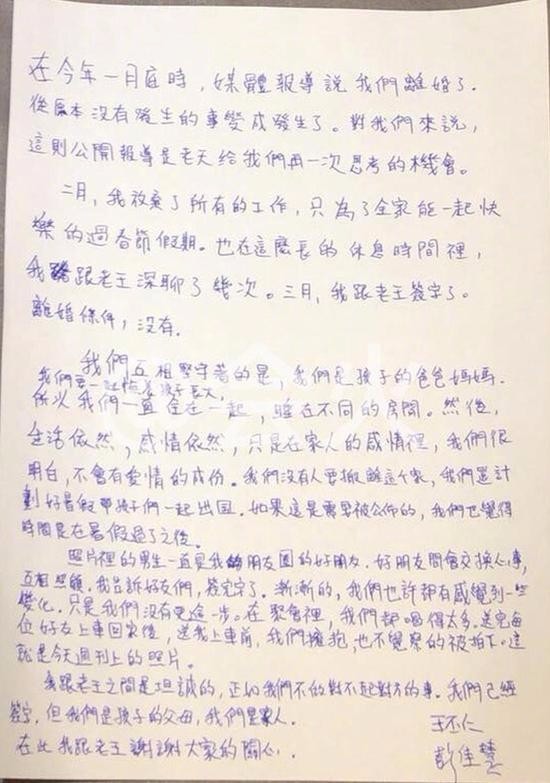 在今年一月底時，媒體報導說我們離婚了.
從原本沒有發生的事變成發生了。對我們來說，
這則公開報導是老天給我們再一次思考的機會。
二月，我放棄了所有的工作，只為了全家能一起快
樂的過春節假期。也在這麼長的休息時間裡，
我跟老王深聊了幾次。三月，我跟老王簽字了。
離婚條件，沒有.
我們互相堅守著的是，我們是孩子的爸爸媽媽.
我們要一起陪著孩子長大，
所以我們一直住在一起，睡在不同的房間。然後，
生活依然，感情依然，只是在家人的感情裡，我們很
明白，不會有愛情的成份。我們沒有人要搬離這个家，我們還計
劃好暑假帶孩子們一起出国. 如果這是需要被公佈的，我們也覺得
時間是在暑假過了之後。
照片裡的男生一直是我的朋友圈的好朋友. 好朋友間會交換心事，
互相照顧. 我告訴好友們，簽完字了. 漸漸的，我們也許都有感覺到一些
變化. 只是我們沒有更進一步。在聚會裡，我們都喝得太多. 送完每
位好友上車回家後，送我上車前，我們擁抱，也不覺察的被拍下. 這
就是今天週刊上的照片。
我跟老王之間是坦誠的，正如我們不做對不起對方的事. 我們已經
簽字，但我們是孩子的父母，我們是家人.
在此我跟老王謝謝大家的關心.
王丕仁
彭佳慧